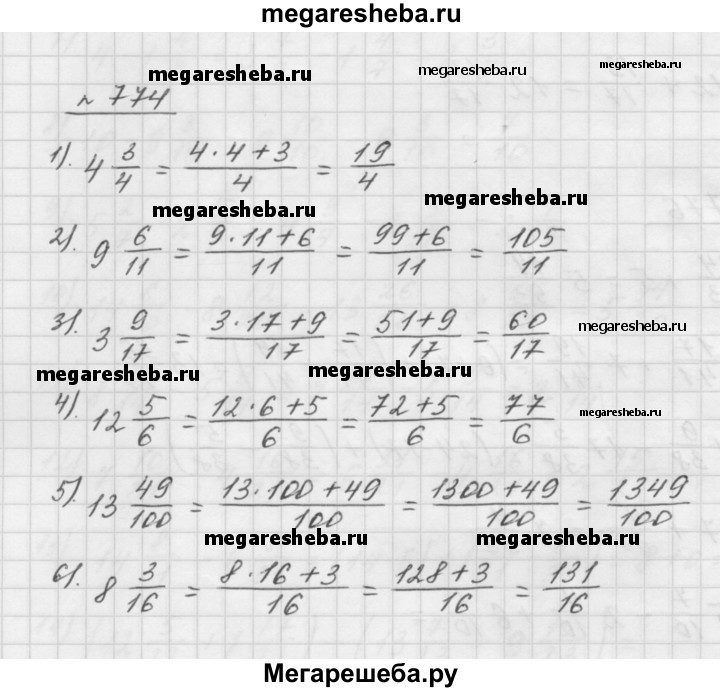 megaresheba.ru
megaresheba.ru megaresheba.ru megaresheba.ru
№ 774
1). 4 3/4 = (4·4+3)/4 = 19/4
megaresheba.ru megaresheba.ru
2). 9 6/11 = (9·11+6)/11 = (99+6)/11 = 105/11
3). 3 9/17 = (3·17+9)/17 = (51+9)/17 = 60/17
megaresheba.ru
megaresheba.ru megaresheba.ru
4). 12 5/6 = (12·6+5)/6 = (72+5)/6 = 77/6
megaresheba.ru
5). 13 49/100 = (13·100+49)/100 = (1300+49)/100 = 1349/100
megaresheba.ru megaresheba.ru
6). 8 3/16 = (8·16+3)/16 = (128+3)/16 = 131/16
Мегарешеба.ру